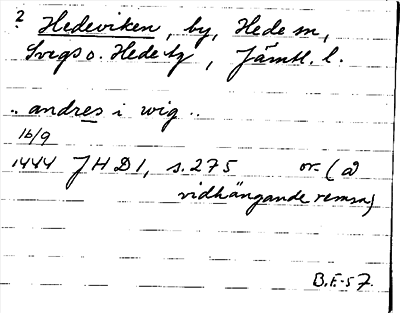 2 Hedeviken, by, Hede sn,
Svegs o. Hede tg, Jämtl. l.
.. andres i wig ..
16/9
1444 JHD 1, s. 275 or. (å
vidhängande remsa)
B.E-57.